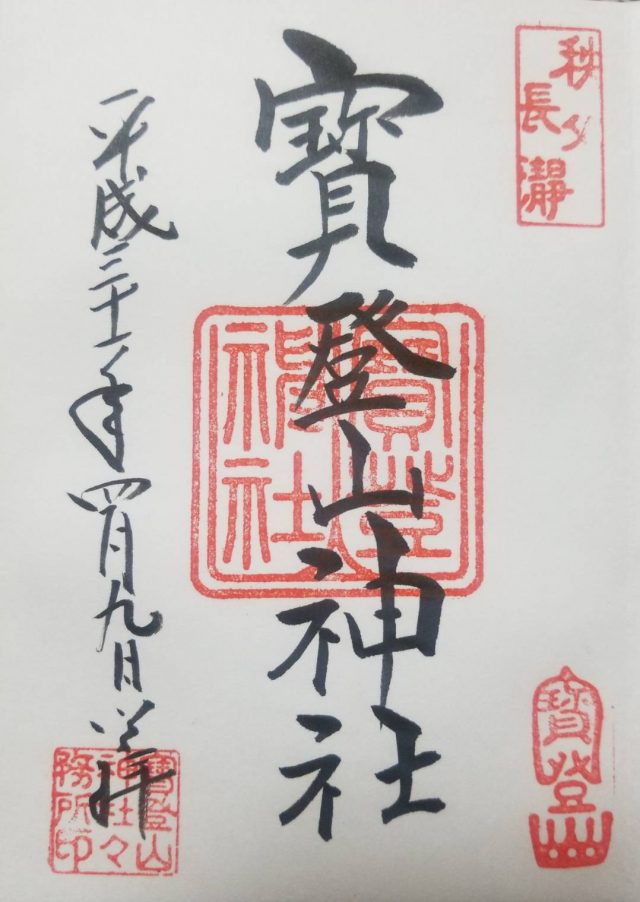 秩父
長瀞
寳登山神社
寳登山神社
平成三十一年四月九日 参拝
寳登
寳登山
神社々
務所印